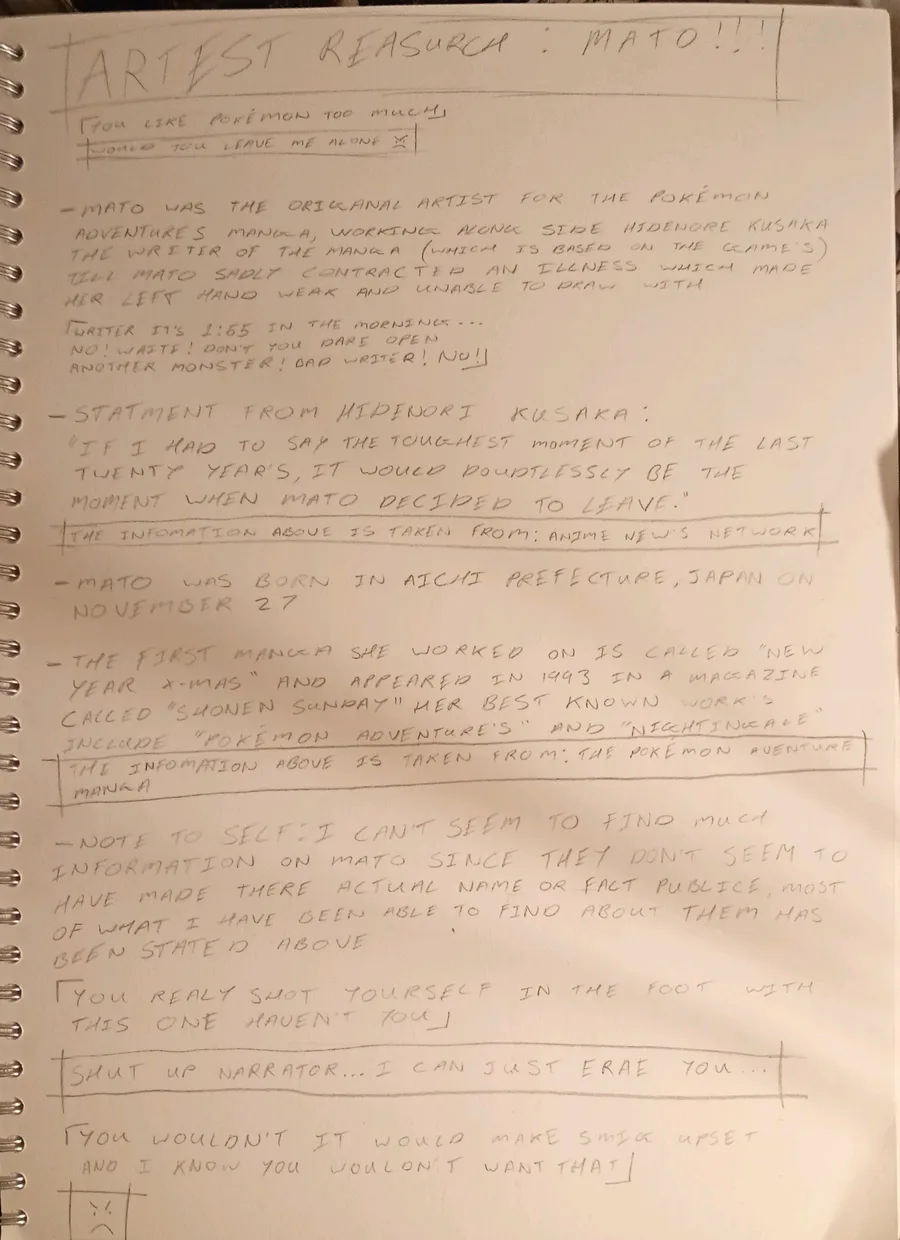 ARTEST REASURCH : MATO!!!
「YOU LIKE POKÉMON TOO MUCH」
WOULD YOU LEAVE ME ALONE
- MATO WAS THE ORIGANAL ARTIST FOR THE POKÉMON
ADVENTURES MANGA, WORKING ALONG SIDE HIDENORE KUSAKA
THE WRITER OF THE MANGA (WHICH IS BASED ON THE GAME'S)
TILL MATO SADLY CONTRACTED AN ILLNESS WHICH MADE
HER LEFT HAND WEAK AND UNABLE TO DRAW WITH
「WRITER IT'S 1:55 IN THE MORNING...
NO! WAITE! DON'T YOU DARE OPEN
ANOTHER MONSTER! BAD WRITER! NO!」
- STATMENT FROM HIDENORI KUSAKA:
"IF I HAD TO SAY THE TOUGHEST MOMENT OF THE LAST
TWENTY YEAR'S, IT WOULD DOUDTLESSLY BE THE
MOMENT WHEN MATO DECIDED TO LEAVE."
THE INFOMATION ABOVE IS TAKEN FROM: ANIME NEW'S NETWORK
- MATO WAS BORN IN AICHI PREFECTURE, JAPAN ON
NOVEMBER 27
- THE FIRST MANGA SHE WORKED ON IS CALLED "NEW
YEAR X-MAS" AND APPEARED IN 1993 IN A MAGAZINE
CALLED "SHONEN SUNDAY" HER BEST KNOWN WORK'S
INCLUDE "POKÉMON ADVENTURE'S" AND "NIGHTINGALE"
THE INFOMATION ABOVE IS TAKEN FROM: THE POKÉMON AVENTURE
MANGA
- NOTE TO SELF: I CAN'T SEEM TO FIND MUCH
INFORMATION ON MATO SINCE THEY DON'T SEEM TO
HAVE MADE THERE ACTUAL NAME OR FACT PUBLICE, MOST
OF WHAT I HAVE BEEN ABLE TO FIND ABOUT THEM HAS
BEEN STATED ABOVE
「YOU REALY SHOT YOURSELF IN THE FOOT WITH
THIS ONE HAVEN'T YOU」
SHUT UP NARRATOR... I CAN JUST ERAE YOU...
「YOU WOULDN'T IT WOULD MAKE SMIG UPSET
AND I KNOW YOU WOULDN'T WANT THAT」